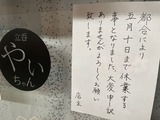 都合により
五月十日まで休業する
事となりました。大変申訳
ありませんがよろしくお願い
致します。
店主
立呑
やい
ちゃん